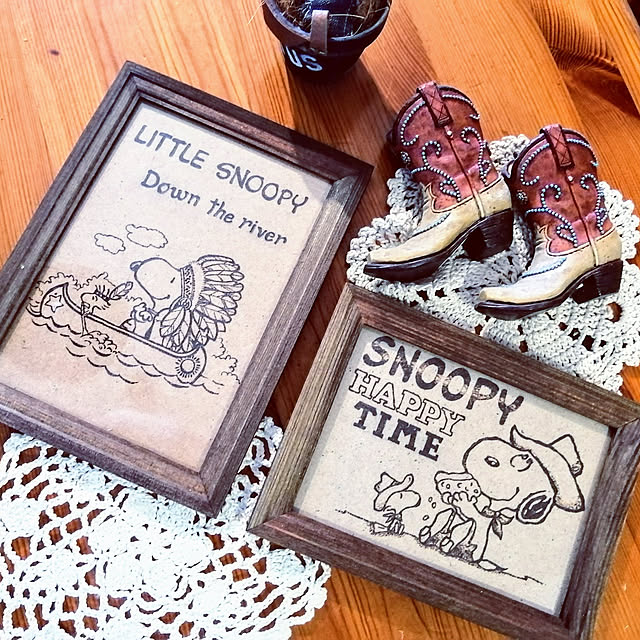 US
LITTLE SNOOPY
Down the river
SNOOPY
HAPPY
TIME